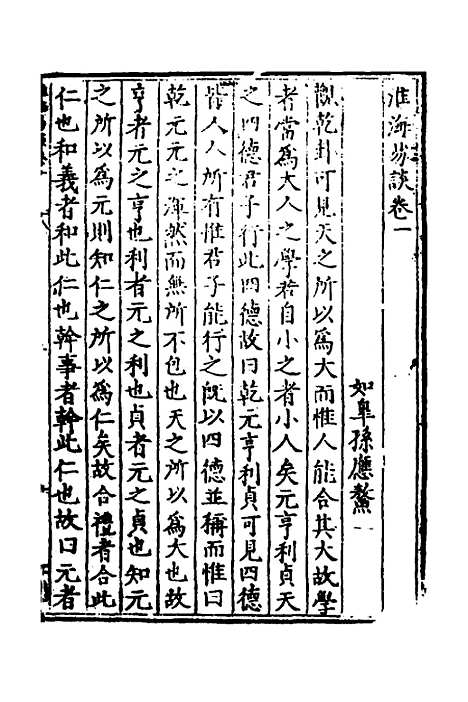 淮海易談卷一
如皐孫應鰲
觀乾卦可見天之所以爲大而惟人能合其大故學
者當爲大人之學若自小之者小人矣元亨利貞天
之四德君子行此四德故曰乾元亨利貞可見四德
皆人人所有惟君子能行之旣以四德並稱而惟曰
乾元元之渾然而無所不包也天之所以爲大也故
亨者元之亨也利者元之利也貞者元之貞也知元
之所以爲元則知仁之所以爲仁矣故合禮者合此
仁也和義者和此仁也幹事者幹此仁也故曰元者